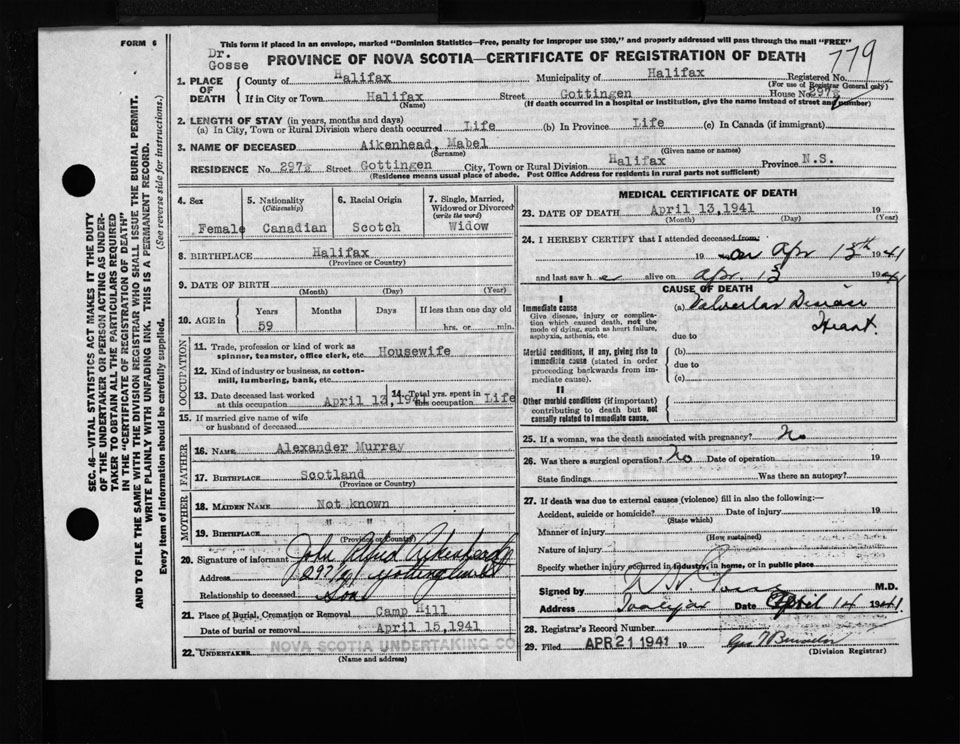 FORM 6
This form if placed in an envelope, marked "Dominion Statistics—Free, penalty for improper use $300," and properly addressed will pass through the mail "FREE"
Dr.
Gosse
PROVINCE OF NOVA SCOTIA—CERTIFICATE OF REGISTRATION OF DEATH
779
1. PLACE OF DEATH
County of Halifax Municipality of Halifax Registered No.
(For use of Registrar General only)
If in City or Town Halifax Street Gottingen House No. 297½
(Name) (If death occurred in a hospital or institution, give the name instead of street and number)
2. LENGTH OF STAY (in years, months and days)
(a) In City, Town or Rural Division where death occurred Life (b) In Province Life (c) In Canada (if immigrant)
3. NAME OF DECEASED Aikenhead, Mabel
(Surname) (Given name or names)
RESIDENCE No. 297½ Street Gottingen City, Town or Rural Division Halifax Province N.S.
(Residence means usual place of abode. Post Office Address for residents in rural parts not sufficient)
4. Sex
Female
5. Nationality
(Citizenship)
Canadian
6. Racial Origin
Scotch
7. Single, Married, Widowed or Divorced
(write the word)
Widow
8. BIRTHPLACE Halifax
(Province or Country)
9. DATE OF BIRTH
(Month) (Day) (Year)
10. AGE in Years Months Days If less than one day old
59 hrs. or min.
OCCUPATION
11. Trade, profession or kind of work as
spinner, teamster, office clerk, etc. Housewife
12. Kind of industry or business, as cotton-
mill, lumbering, bank, etc.
13. Date deceased last worked
at this occupation April 13,1941
14. Total yrs. spent in
this occupation Life
15. If married give name of wife
or husband of deceased
FATHER
16. NAME Alexander Murray
17. BIRTHPLACE Scotland
(Province or Country)
MOTHER
18. MAIDEN NAME Not known
19. BIRTHPLACE " "
(Province or Country)
20. Signature of informant John Alfred Aikenhead
Address 297½ Gottingen St
Relationship to deceased Son
21. Place of Burial, Cremation or Removal Camp Hill
Date of burial or removal April 15,1941
22. UNDERTAKER NOVA SCOTIA UNDERTAKING CO
(Name and address)
MEDICAL CERTIFICATE OF DEATH
23. DATE OF DEATH April 13,1941 19
(Month) (Day) (Year)
24. I HEREBY CERTIFY that I attended deceased from:
19 on Apr 13th 1941
and last saw h e alive on Apr. 13 1941
CAUSE OF DEATH
I
Immediate cause
Give disease, injury or complica-
tion which caused death, not the
mode of dying, such as heart failure,
asphyxia, asthenia, etc
(a) Valvular Disease
Heart.
due to
Morbid conditions, if any, giving rise to
immediate cause (stated in order
proceeding backwards from im-
mediate cause).
(b)
due to
(c)
II
Other morbid conditions (if important)
contributing to death but not
causally related to immediate cause.
25. If a woman, was the death associated with pregnancy? No
26. Was there a surgical operation? No Date of operation 19
State findings Was there an autopsy?
27. If death was due to external causes (violence) fill in also the following:—
Accident, suicide or homicide? Date of injury 19
(State which)
Manner of injury
(How sustained)
Nature of injury
Specify whether injury occurred in industry, in home, or in public place
Signed by M.D.
Address Halifax Date April 14 1941
28. Registrar's Record Number
29. Filed APR 21 1941 19
(Division Registrar)
SEC. 46—VITAL STATISTICS ACT MAKES IT THE DUTY
OF THE UNDERTAKER OR PERSON ACTING AS UNDER-
TAKER TO OBTAIN ALL THE PARTICULARS REQUIRED
IN THE "CERTIFICATE OF REGISTRATION OF DEATH"
AND TO FILE THE SAME WITH THE DIVISION REGISTRAR WHO SHALL ISSUE THE BURIAL PERMIT.
WRITE PLAINLY WITH UNFADING INK. THIS IS A PERMANENT RECORD.
Every item of information should be carefully supplied. (See reverse side for instructions.)